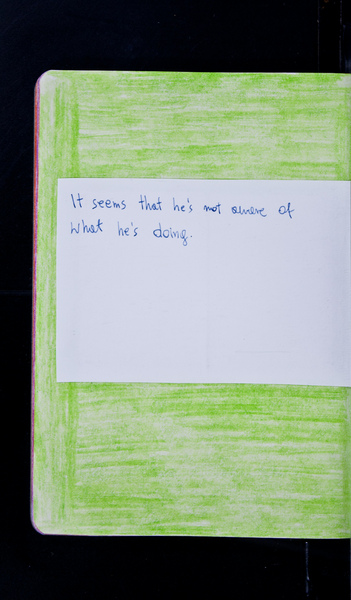 It seems that he's not aware of
what he's doing.